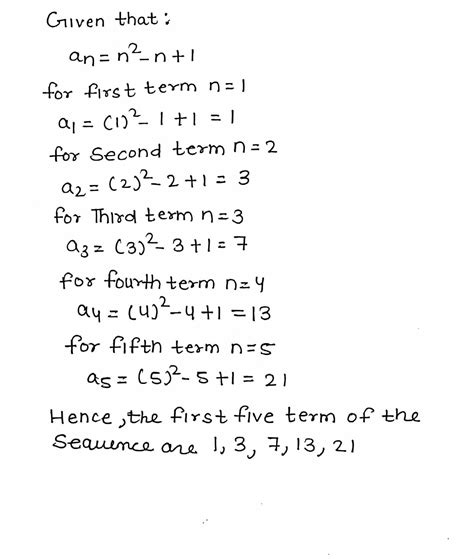 Given that:
an = n²-n+1
for first term n=1
a1 = (1)²-1+1 = 1
for second term n=2
a2 = (2)²-2+1 = 3
for Third term n=3
a3 = (3)²-3+1=7
for fourth term n=4
a4 = (4)²-4+1=13
for fifth term n=5
a5 = (5)²-5+1 = 21
Hence, the first five term of the
Sequence are 1, 3, 7, 13, 21